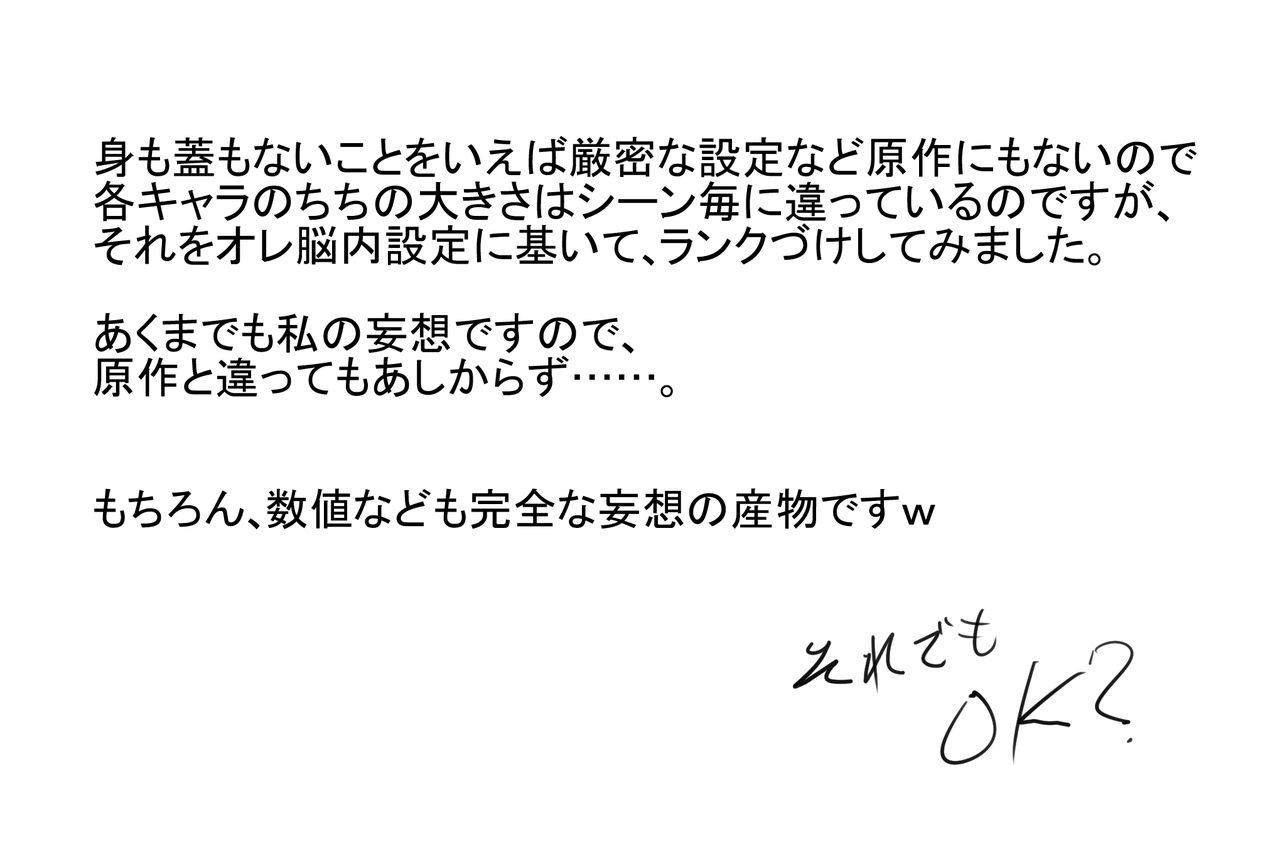 身も蓋もないことをいえば厳密な設定など原作にもないので
各キャラのちちの大きさはシーン毎に違っているのですが、
それをオレ脳内設定に基いて、ランクづけしてみました。
あくまでも私の妄想ですので、
原作と違ってもあしからず……。
もちろん、数値なども完全な妄想の産物ですｗ
それでも
OK?